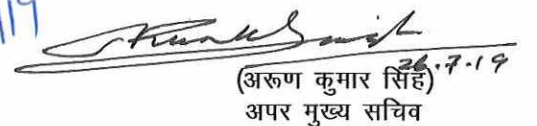 26.7.19
(अरूण कुमार सिंह)
अपर मुख्य सचिव